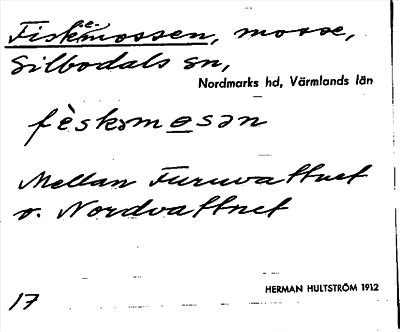 Fiskmossen, mosse,
e.
Silbodals sn,
Nordmarks hd, Värmlands län
fèskəmosən
Mellan Furuvattnet
o. Nordvattnet
HERMAN HULTSTRÖM 1912
17